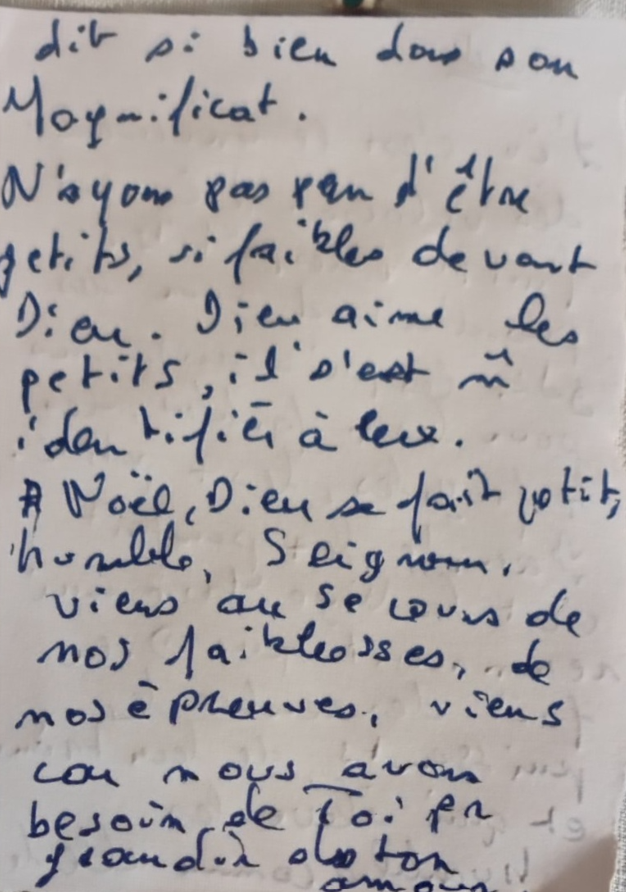 dit si bien dans son
Magnificat.
N'ayons pas peur d'être
petits, si faibles devant
Dieu. Dieu aime les
petits, il s'est m̂
identifié à eux.
A Noël, Dieu se fait petit,
humble, Seigneur,
viens au secours de
nos faiblesses, de
nos épreuves, viens
car nous avons
besoin de Toi
grandir ton
amour